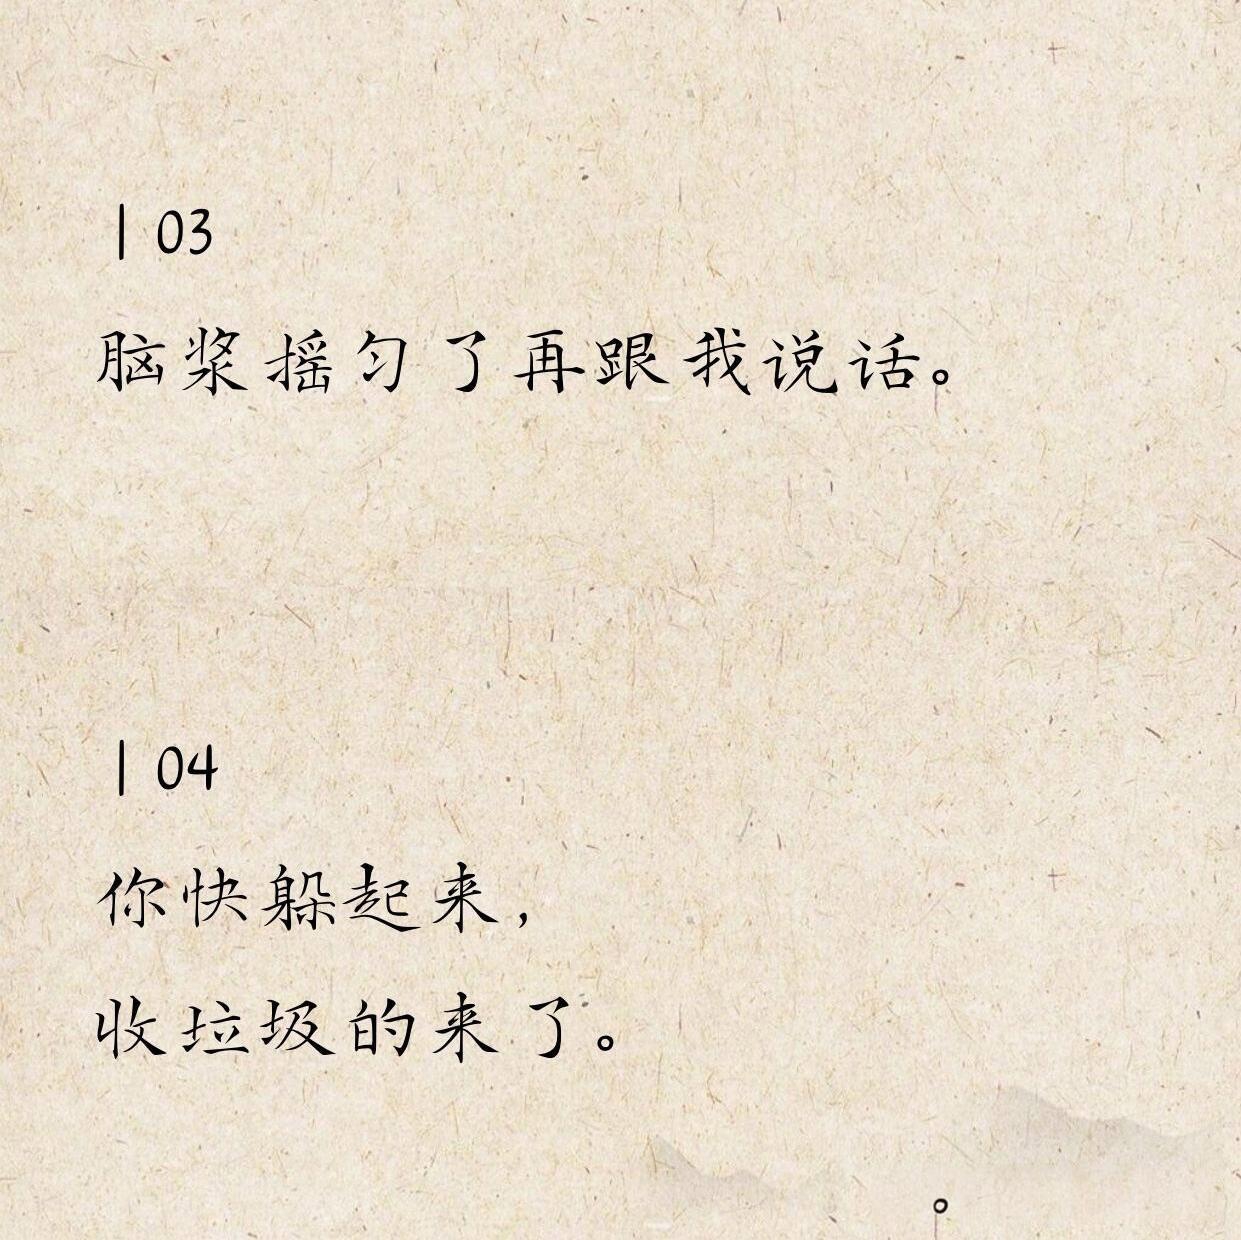 | 03
脑浆摇匀了再跟我说话。
| 04
你快躲起来,
收垃圾的来了。